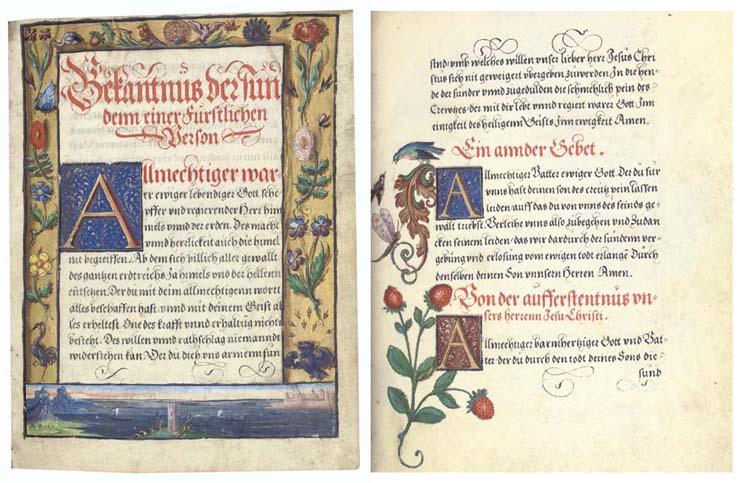 Bekantnus der sun
denn einer Fürstlichen
Person
Allmechtiger war
er ewiger lebendiger Gott sche
pffer vnd regierender Herr him
mels vnnd der erden. Des macht
vnnd herlickeit auch die himel
nit begreiffen. Ab dem sich billich aller gewallt
des gantzen erdtreichs Ja himels vnd der hellenn
entsetzen. Der du mit deim allmechtigenn wortt
alles beschaffen hast. vnnd mit deinem Geist al
les erheltest. One des krafft vnnd erhaltug nichts
besteht. Des willen vnnd rathschlag niemanndt
widerstehen kan. Der du dich vns armenn sun
sind vmb welches willen vnser lieber herr Jesus Chri
stus sich nit geweigert vbergeben zuwerden In die hen
de der sunder vnnd zugedulden die schmehlich pein des
Creutzes. der mit dir lebt vnnd regiert warer Gott Inn
einigkeit des heiligenn Geists Inn ewigkeit Amen.
Ein annder Gebet.
Allmechtiger Vatter ewiger Gott Der du für
vnns hast deinen son des creutz pein lassen
leiden auff das du von vnns des feinds ge
walt triebst. Verleihe vnns also zubegehen vnd zudan
cken seinem leiden, das wir dardurch der sundenn ver
gebung vnd erlosung vom ewigen tod erlange Durch
denselben deinen Son vnnsern Herren Amen.
Von der aufferstentnus vn
sers herrenn Jesu Christi.
Allmechtiger barmhertziger Gott vnd Vat
ter der du durch den todt deines Sons die
sund